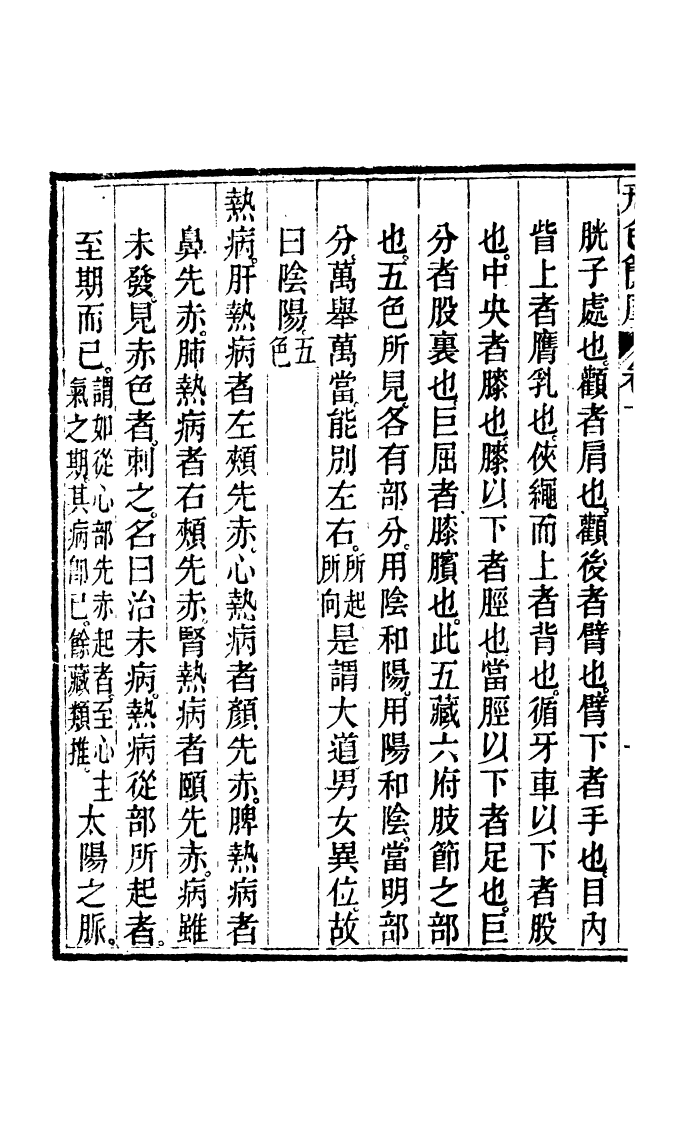 胱子處也。顴者肩也。顴後者臂也。臂下者手也。目內
眥上者膺乳也。俠繩而上者背也。循牙車以下者股
也。中央者膝也。膝以下者脛也。當脛以下者足也。巨
分者股裏也。巨屈者膝臏也。此五藏六府肢節之部
也。五色所見。各有部分。用陰和陽。用陽和陰。當明部
分。萬舉萬當。能別左右。所起所向是謂大道。男女異位。故
曰陰陽。五色
熱病。肝熱病者左頰先赤。心熱病者顏先赤。脾熱病者
鼻先赤。肺熱病者右頰先赤。腎熱病者頤先赤。病雖
未發。見赤色者。刺之。名曰治未病。熱病從部所起者。
至期而已。謂如從心部先赤起者。至心主氣之期。其病即已。餘藏類推。太陽之脈。